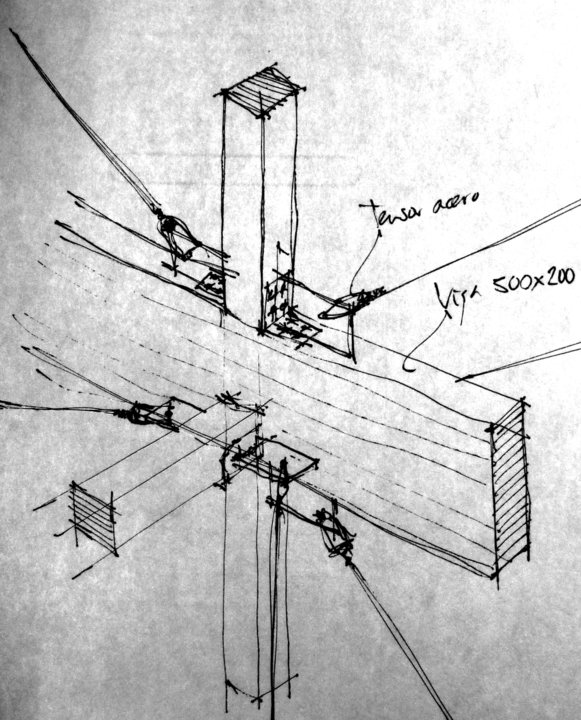 Tensor acero
Viga 500x200